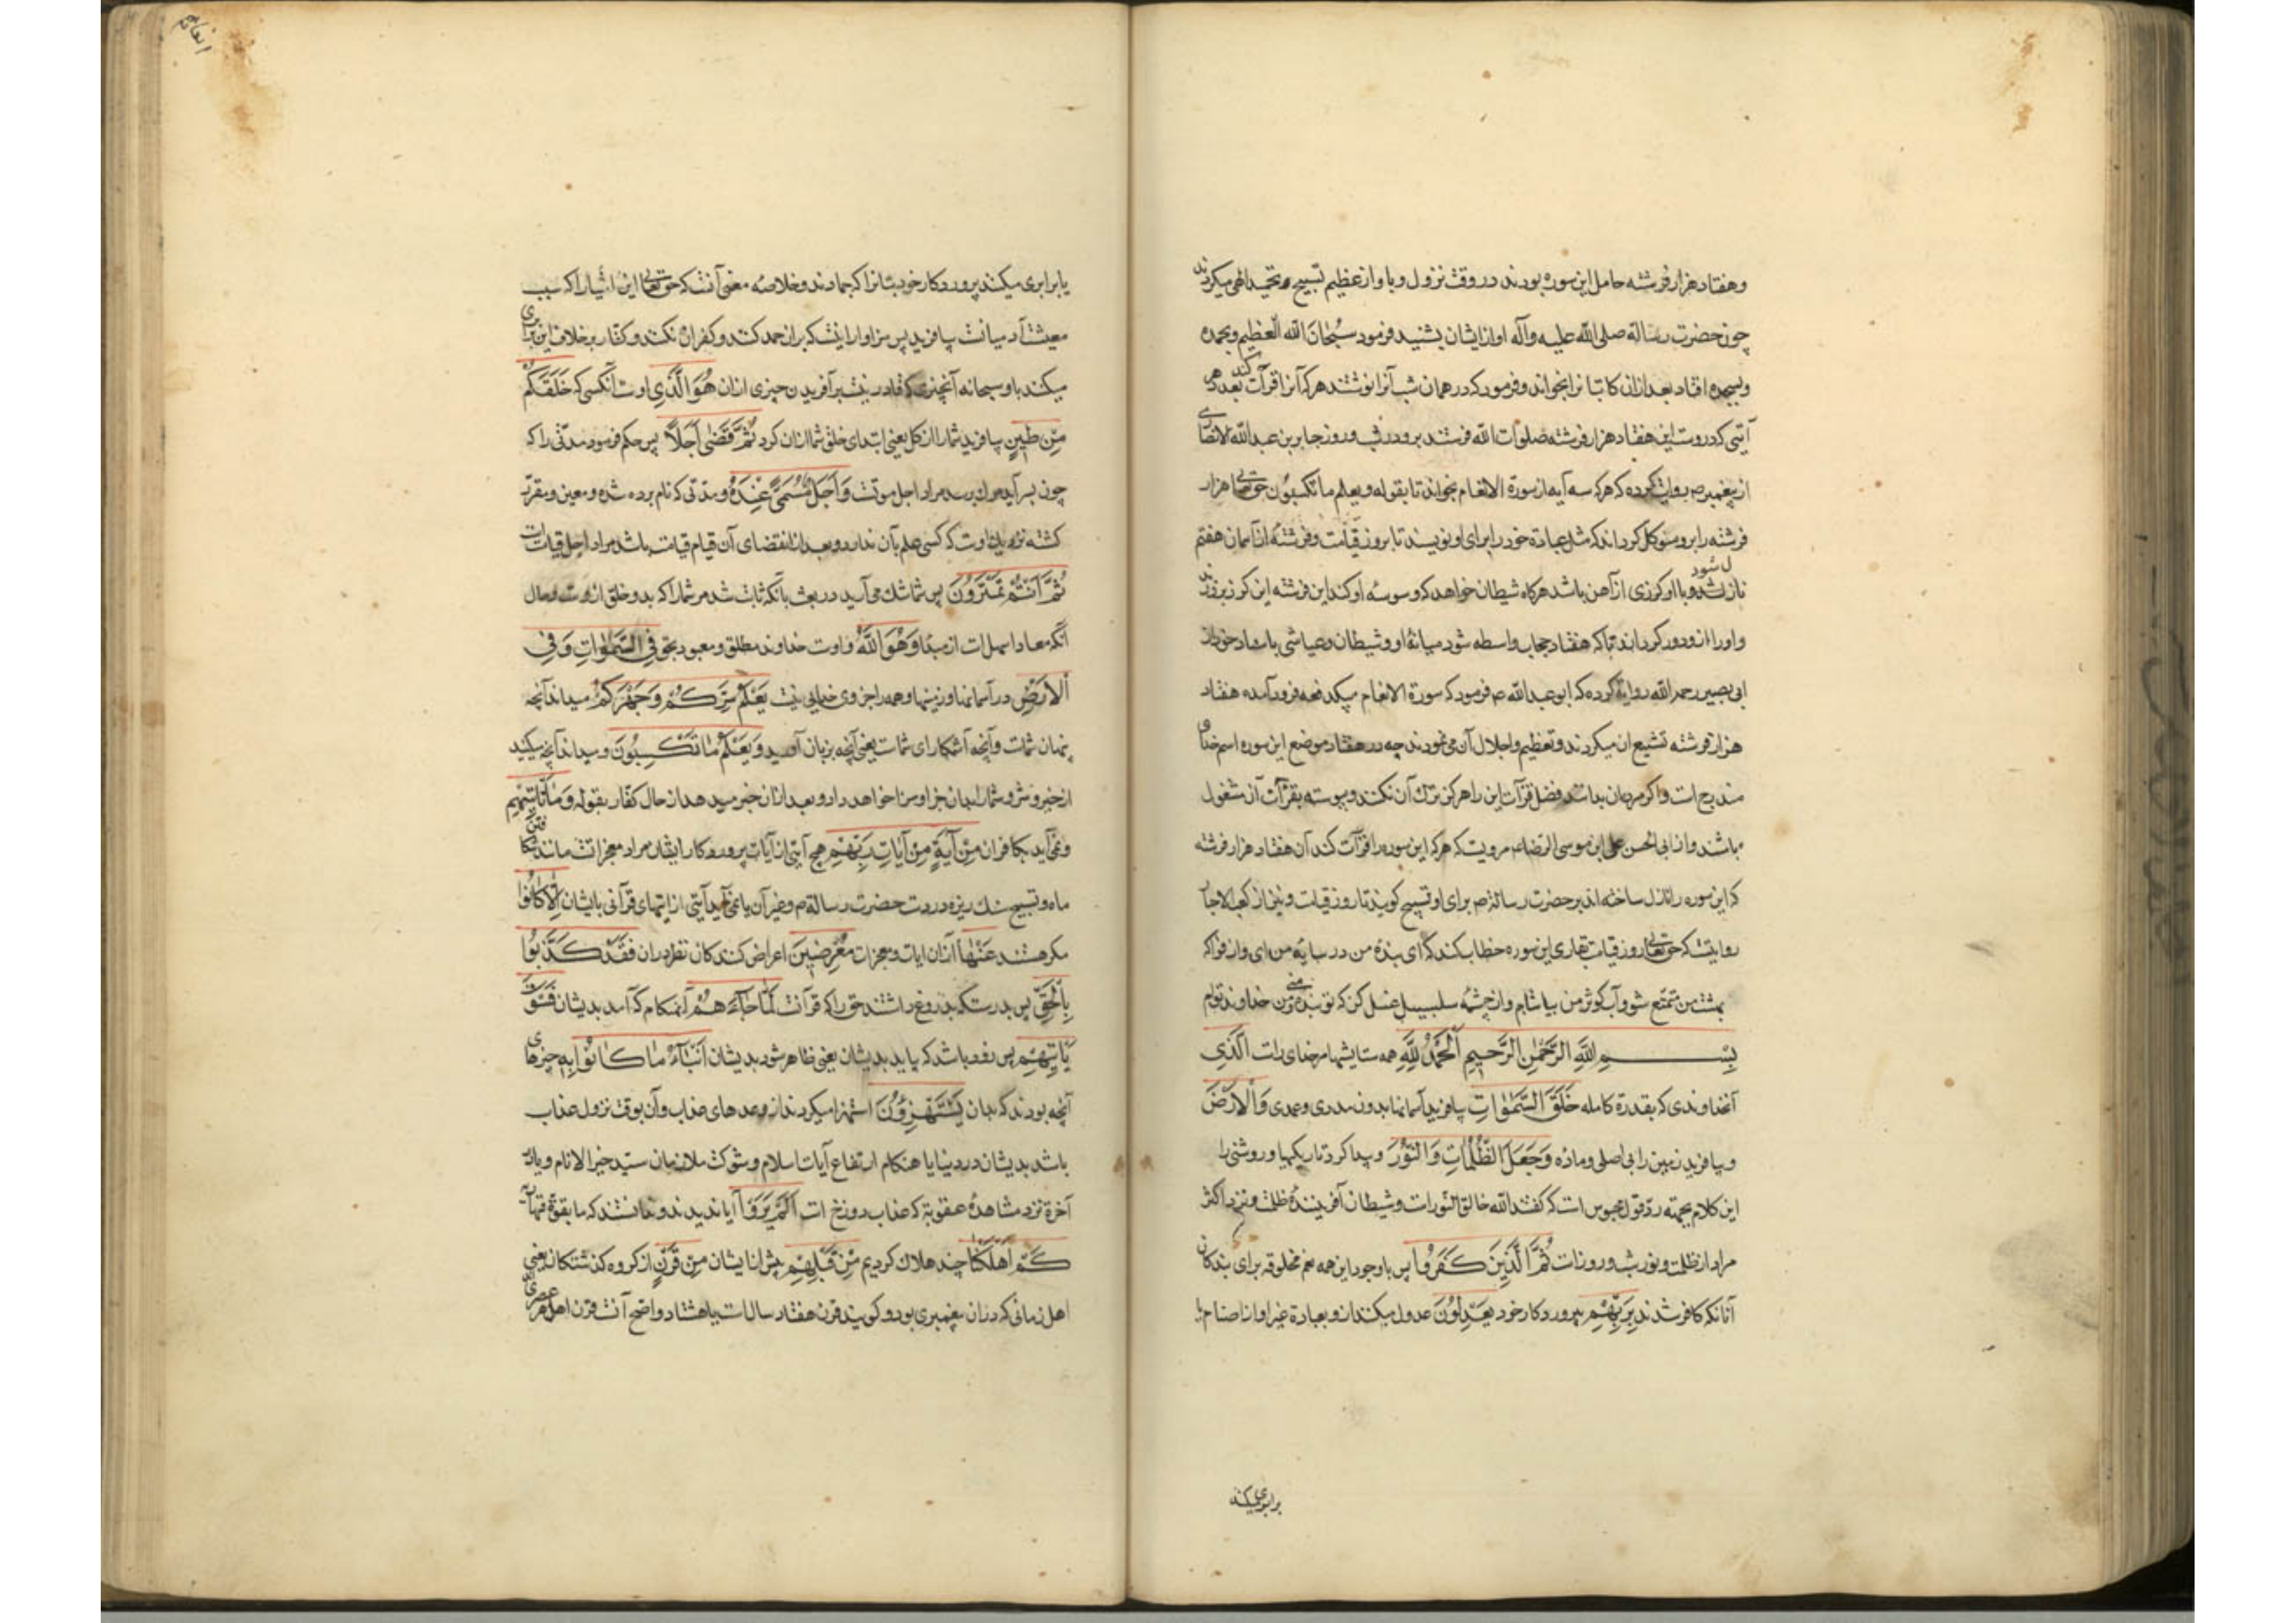 و هفتاد هزار فرشته حامل این سوره بودند در وقت نزول و باواز عظیم تسبیح و تحمید الهی میکردند
چون حضرت رسالة صلی الله علیه وآله اواز ایشان بشنید فرمود سُبْحانَ الله العظیم وبحمده
وبسجده افتاد بعد ازان کاتبانرا بخواند وفرمود که در همان شب آنرا نوشتند هرکه آنرا قرآت کند بعدد هر
آیتی که دروست این هفتاد هزار فرشته صلوات الله فرستند برو در شب و روز جابر بن عبدالله الانصاری
از پیغمبر ص روایت کرده که هرکه سه آیه از سورة الانعام بخواند تا بقوله ویعلم ما تکسبون حق تعالی هزار
فرشته را برو موکل کرداند که مثل عبادة خود را برای او نویسند تا بروز قیامت و فرشتهٔ از آسمان هفتم
نازل شود و با او کرزی از آهن باشد هرکاه شیطان خواهد که وسوسه او کند این فرشته این کرز برو زند
و اورا ازو دور کرداند تا که هفتاد حجاب واسطه شود میانهٔ او و شیطان وعیاشی باسناد خود از
ابی بصیر رحمه الله روایة کرده که ابو عبدالله ص فرمود که سورة الانعام بیکدفعه فرود آمده هفتاد
هزار فرشته تشیع ان میکردند و تعظیم و اجلال آن می نمودند چه در هفتاد موضع این سوره اسم خدای
مندرج است و اکر مردمان بدانند فضل قرآت این را هرکز ترك آن نکنند و پیوسته بقرآت آن مشغول
باشند و از ابی الحسن علی ابن موسی الرضا ع مرویست که هرکه این سوره را قرآت کند آن هفتاد هزار فرشته
که این سوره را نازل ساخته اند بر حضرت رسالة ص برای او تسبیح کویند تا روز قیامت و نیز از کعب الاحبار
روایتست که حق تعالی روز قیامت بقاری این سوره خطاب کند که ای بندهٔ من در سایهٔ من ای و از فواکه
بهشت من متمتع شو و آب کوثر من بیاشام و از چشمه سلسبیل غسل کن که تو بنده منی و من خداوند توام
بِسْمِ اللَّهِ الرَّحْمٰنِ الرَّحِیمِ اَلْحَمْدُ لِلَّهِ همه ستایشها مر خدای راست اَلَّذِی
آنخداوندی که بقدرة کامله خَلَقَ السَّمٰوَاتِ بیافرید آسمانها بدون مددی وعمدی وَالْاَرْضَ
و بیافرید زمین را بی اصلی و مادّه وَجَعَلَ الظُّلُمَاتِ وَالنُّورَ و پیدا کرد تاریکیها و روشنی را
این کلام بجهته ردّ قول مجوس است که کفتند الله خالق النورات و شیطان آفرینندهٔ ظلمت و نزد اکثر
مراد از ظلمت و نور شب و روزات ثُمَّ الَّذِینَ کَفَرُوا پس باوجود این همه نعم مخلوقه برای بندکان
آنانکه کافر شدند بِرَبِّهِمْ بپروردکار خود یَعْدِلُونَ عدول میکنند ازو بعبادة غیر او از اصنام یا
برابری میکند
یا برابری میکنند پروردکار خود بتانرا که جمادند و خلاصه معنی آنست که حق تعالی این اشیا را که سبب
معیشت آدمیانست بیافرید پس سزاوار اینست که بران حمد کنند و کفران نکنند و کفار بخلاف این برابری
میکنند باو سبحانه آنچیزی که قادر نیست بر آفریدن چیزی ازان هُوَ الَّذِی اوست آنکسی که خَلَقَکُمْ
مِنْ طِینٍ بیافرید شما را از کل یعنی ابتدای خلق شما ازان کرد ثُمَّ قَضٰی اَجَلًا پس حکم فرمود مدتی را که
چون بسر آید مرك رسد مراد اجل موتست وَاَجَلٌ مُسَمًّی عِنْدَهُ و مدتی که نام برده شده و معین و مقرر
کشته نزدیك اوست که کسی علم بآن ندارد و بعد از انقضای آن قیام قیامت باشد مراد اجل قیامت است
ثُمَّ اَنْتُمْ تَمْتَرُونَ پس شما شك می آرید در بعث بآنکه ثابت شد مر شما را که بدو خلق ازوست و حال
آنکه معاد اسهل است از مبدا وَهُوَ اللَّهُ و اوست خداوند مطلق و معبود بحق فِی السَّمٰوَاتِ وَفِی
اَلْاَرْضِ در آسمانها و زمینها وهمه را جز وی خدایی نیست یَعْلَمُ سِرَّکُمْ وَجَهْرَکُمْ میداند آنچه
پنهان شماست و آنچه آشکارای شماست یعنی آنچه بزبان آورید وَیَعْلَمُ مَا تَکْسِبُونَ و میداند آنچه میکنید
از خیر و شر و شما را بدان جزا و سزا خواهد داد و بعد ازان خبر میدهد از حال کفار بقوله وَمَا تَأْتِیهِمْ
و نمی آید بکافران مِنْ آیَةٍ مِنْ آیَاتِ رَبِّهِمْ هیچ آیتی از آیات پروردکار ایشان مراد معجزاتست مانند شکافتن
ماه و تسبیح سنك ریزه در دست حضرت رسالة ص و غیر آن یا نمی آید آیتی از آیتهای قرآنی بایشان اِلَّا کَانُوا
مکر هستند عَنْهَا ازان ایات و معجزات مُعْرِضِینَ اعراض کنندکان نظر دران فَقَدْ کَذَّبُوا
بِالْحَقِّ پس بدرستکه بدروغ داشتند حق را که قرآنست لَمَّا جَآءَهُمْ آنهنکام که آمد بدیشان فَسَوْفَ
یَأْتِیهِمْ پس زود باشد که بیاید بدیشان یعنی ظاهر شود بدیشان اَنْبَآءُ مَا کَانُوا بِهِ خبرهای
آنچه بودند که بدان یَسْتَهْزِؤُنَ استهزا میکردند از وعدهای عذاب و آن بوقت نزول عذاب
باشد بدیشان در دنیا یا هنکام ارتفاع آیات اسلام و شوکت ملازمان سیّد خیر الانام و یا در
آخرة نزد مشاهدهٔ عقوبة که عذاب دوزخ است اَلَمْ یَرَوْا آیا ندیدند و ندانستند که ما بقوّة
کَمْ اَهْلَکْنَا چند هلاك کردیم مِنْ قَبْلِهِمْ پیش از ایشان مِنْ قَرْنٍ از کروه کذشتکان یعنی
اهل زمانی که دران پیغمبری بود و کویند قرن هفتاد سالست یا هشتاد و اصح آنست قرن اهل هر عصری